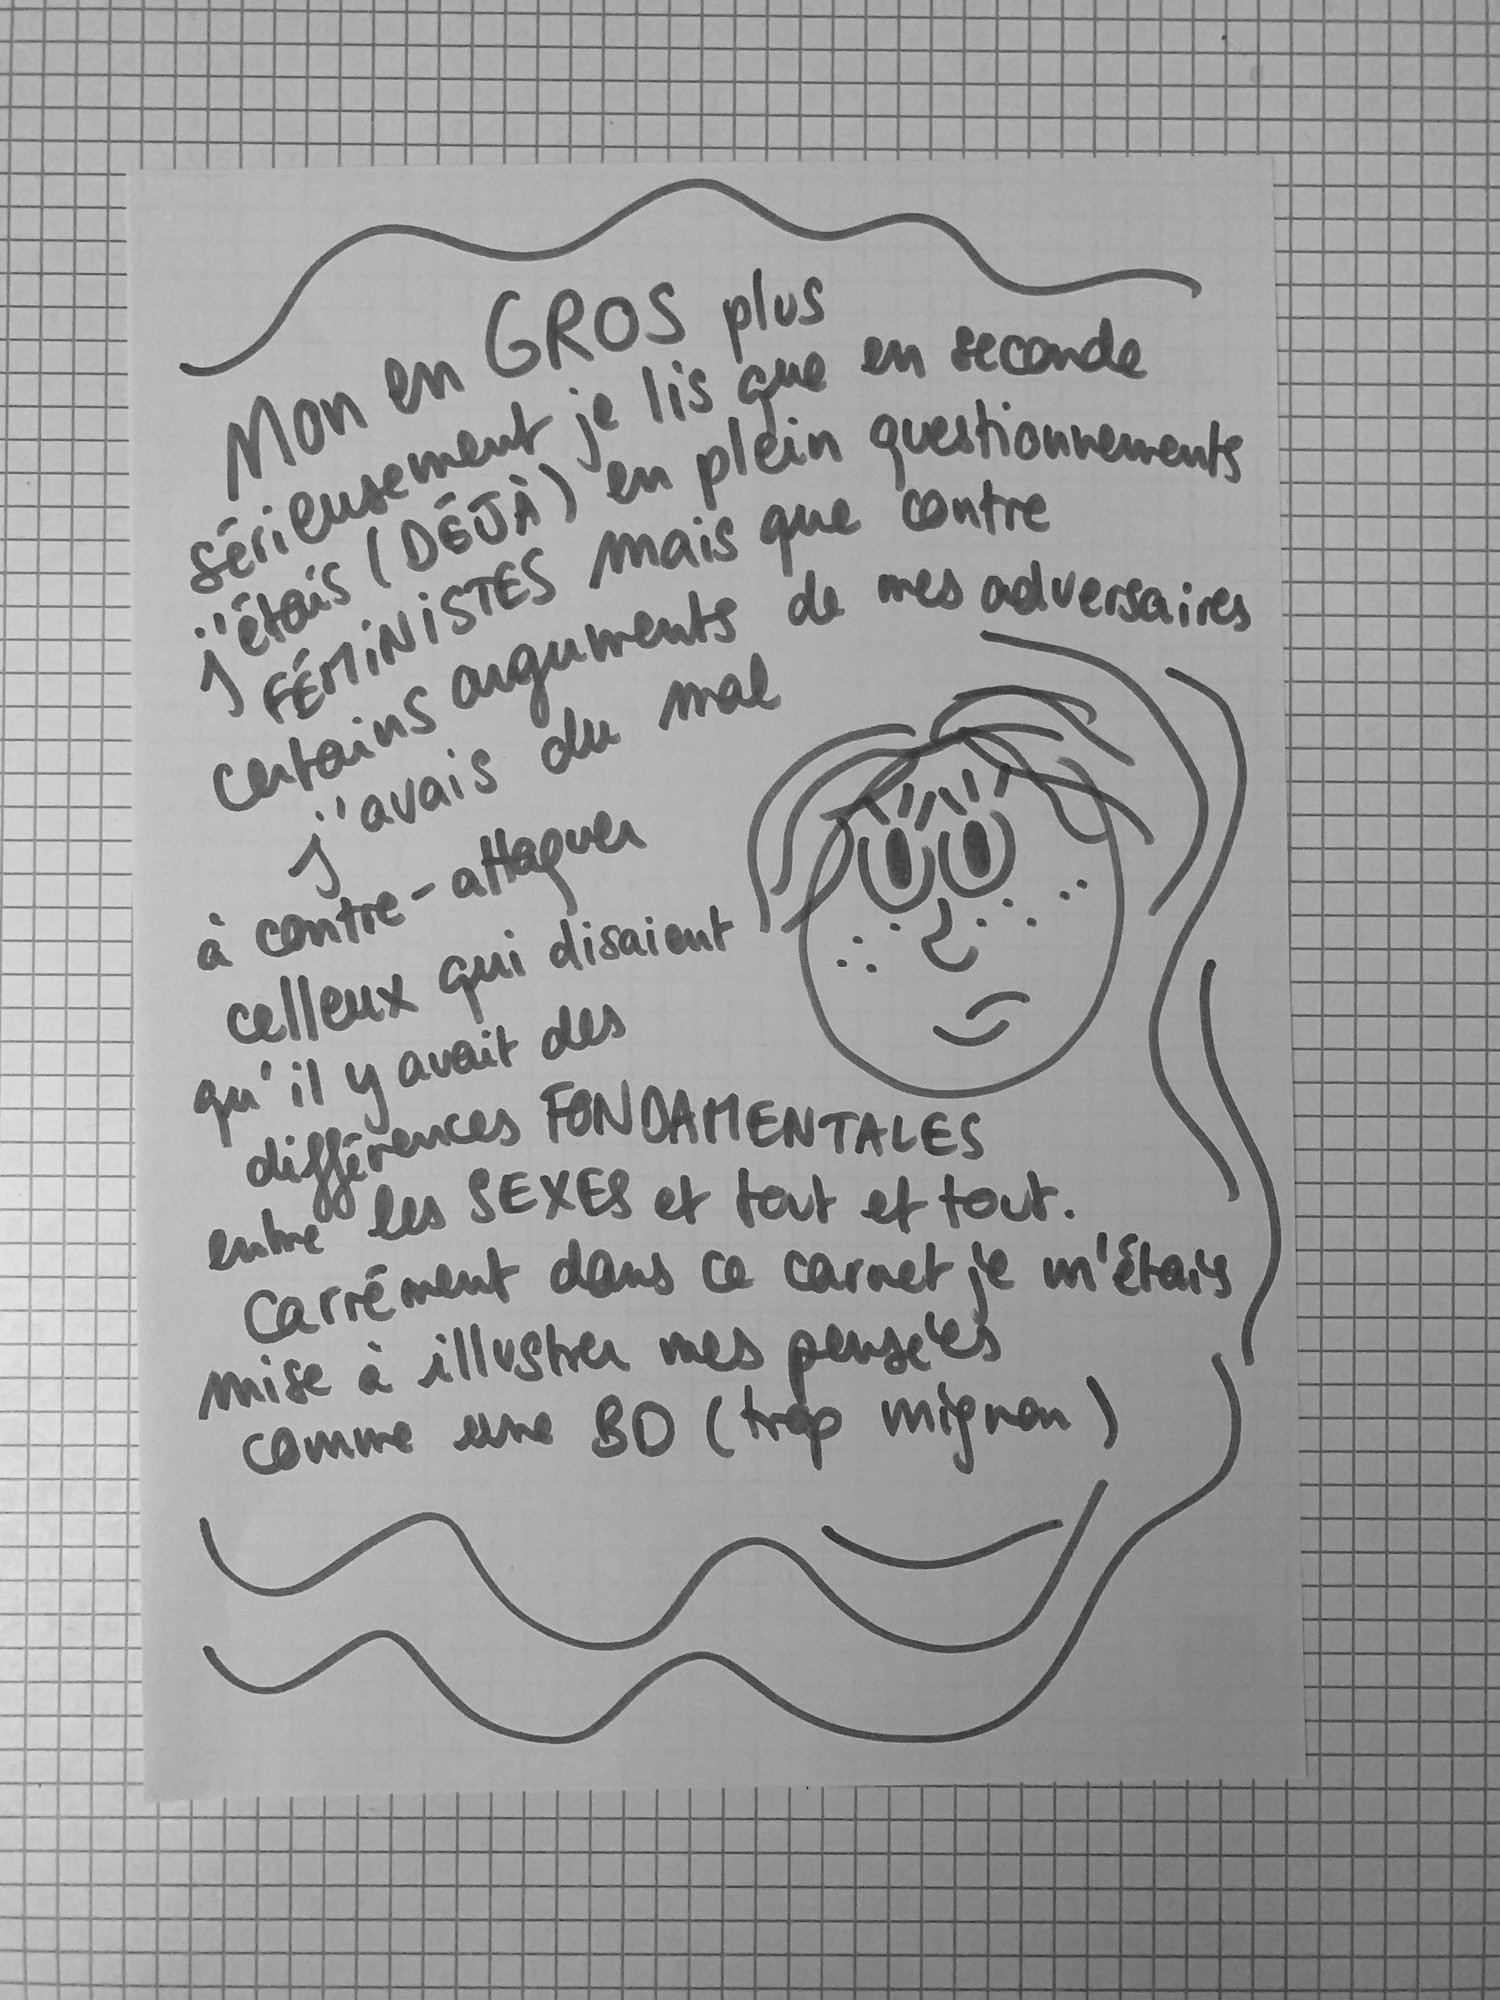 Mon en GROS plus
sérieusement je lis que en seconde
j'étais (DÉJÀ) en plein questionnements
FÉMINISTES mais que contre
certains arguments de mes adversaires
j'avais du mal
à contre-attaquer
celleux qui disaient
qu'il y avait des
différences FONDAMENTALES
entre les SEXES et tout et tout.
Carrément dans ce carnet je m'étais
mise à illustrer mes pensées
comme une BD (trop mignon)